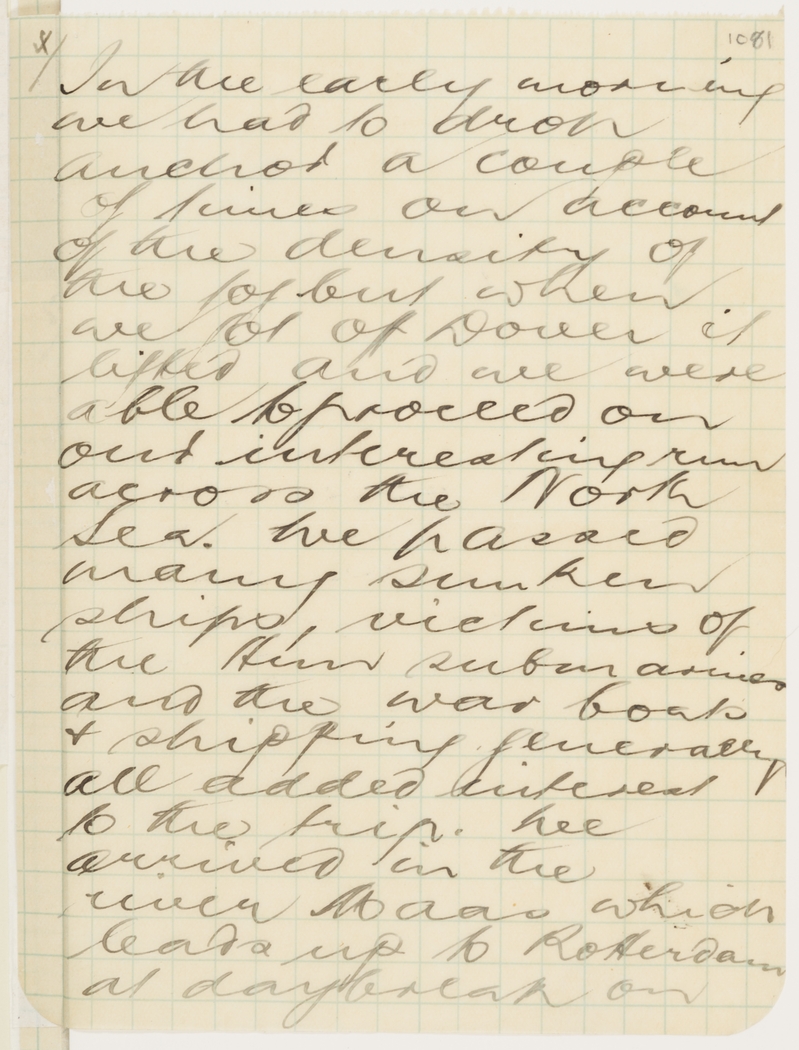 8/ 1081
In the early morning
we had to drop
anchor a couple
of times on account
of the density of
the fog but when
we got off Dover it
lifted and we were
able to proceed on
our interesting run
across the North
Sea. We passed
many sunken
ships, victims of
the Hun submarines
and the war boats
& shipping generally
all added interest
to the trip. We
arrived in the
river Maas which
leads up to Rotterdam
at daybreak on